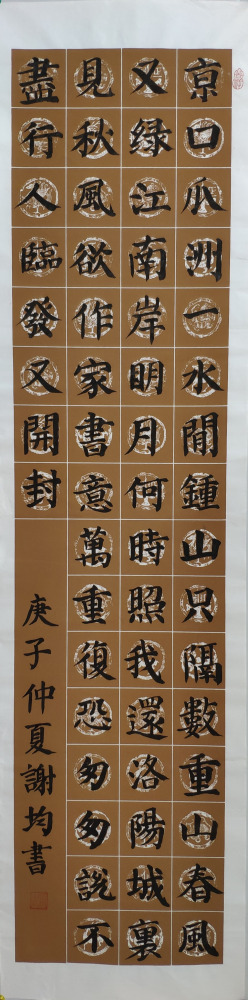 京口瓜洲一水間鍾山只隔數重山春風
又绿江南岸明月何時照我還洛陽城裏
見秋風欲作家書意萬重復恐匆匆說不
盡行人臨發又開封
庚子仲夏謝均書